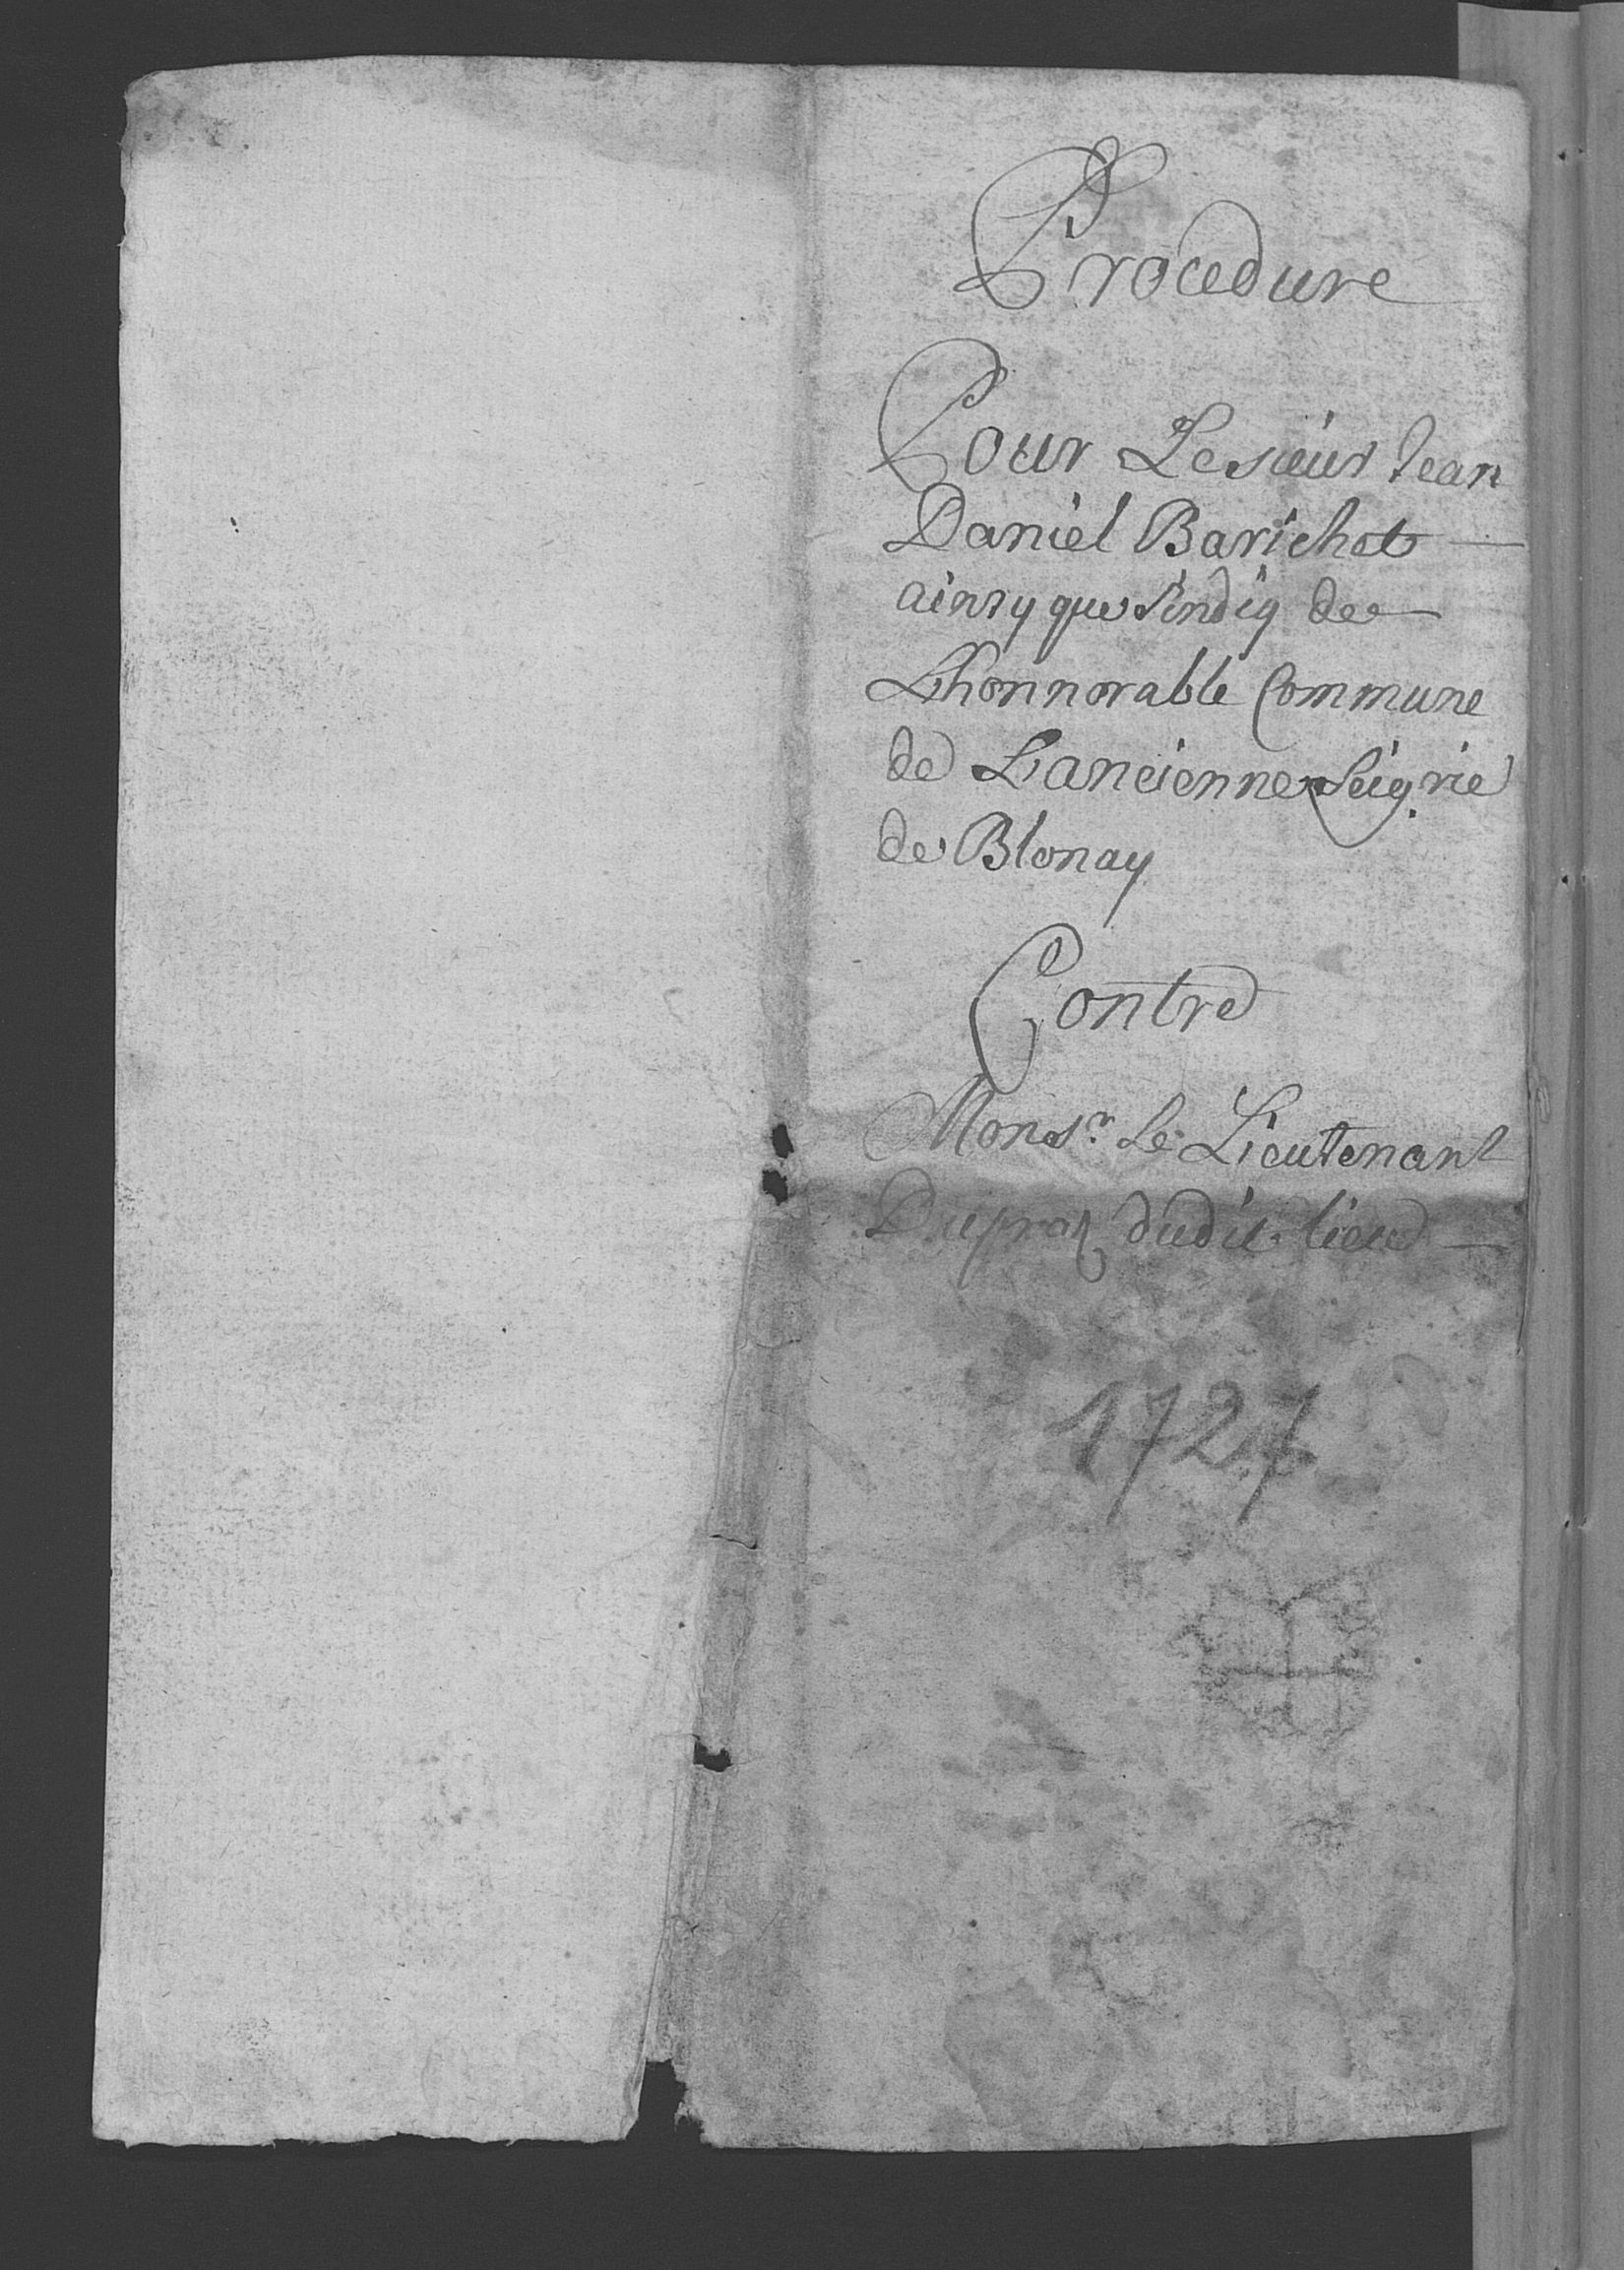 Procedure
Pour Le sieur Jean
Daniel Barichot
ainsy que Sindiq de
Lhonnorable Commune
de Lancienne Seig.rie
de Blonay
Contre
Monsr. Le Lieutenant
Dupraz dudit lieu
1727